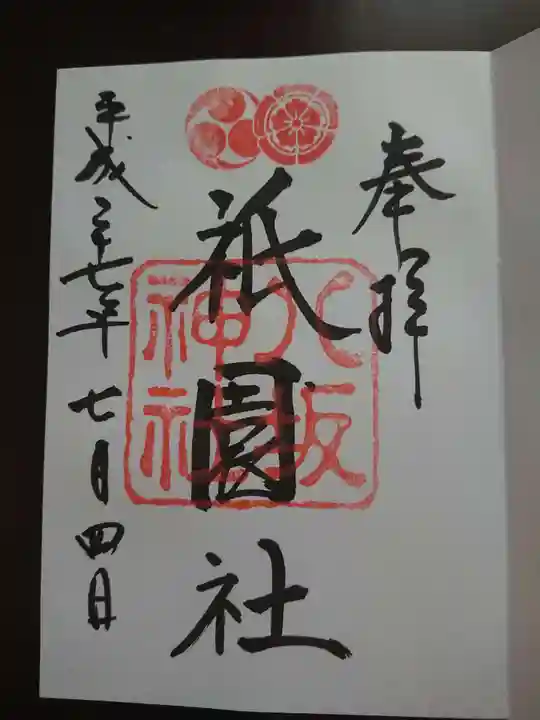 奉拝
祇園社
八坂
神社
平成二十七年七月四日